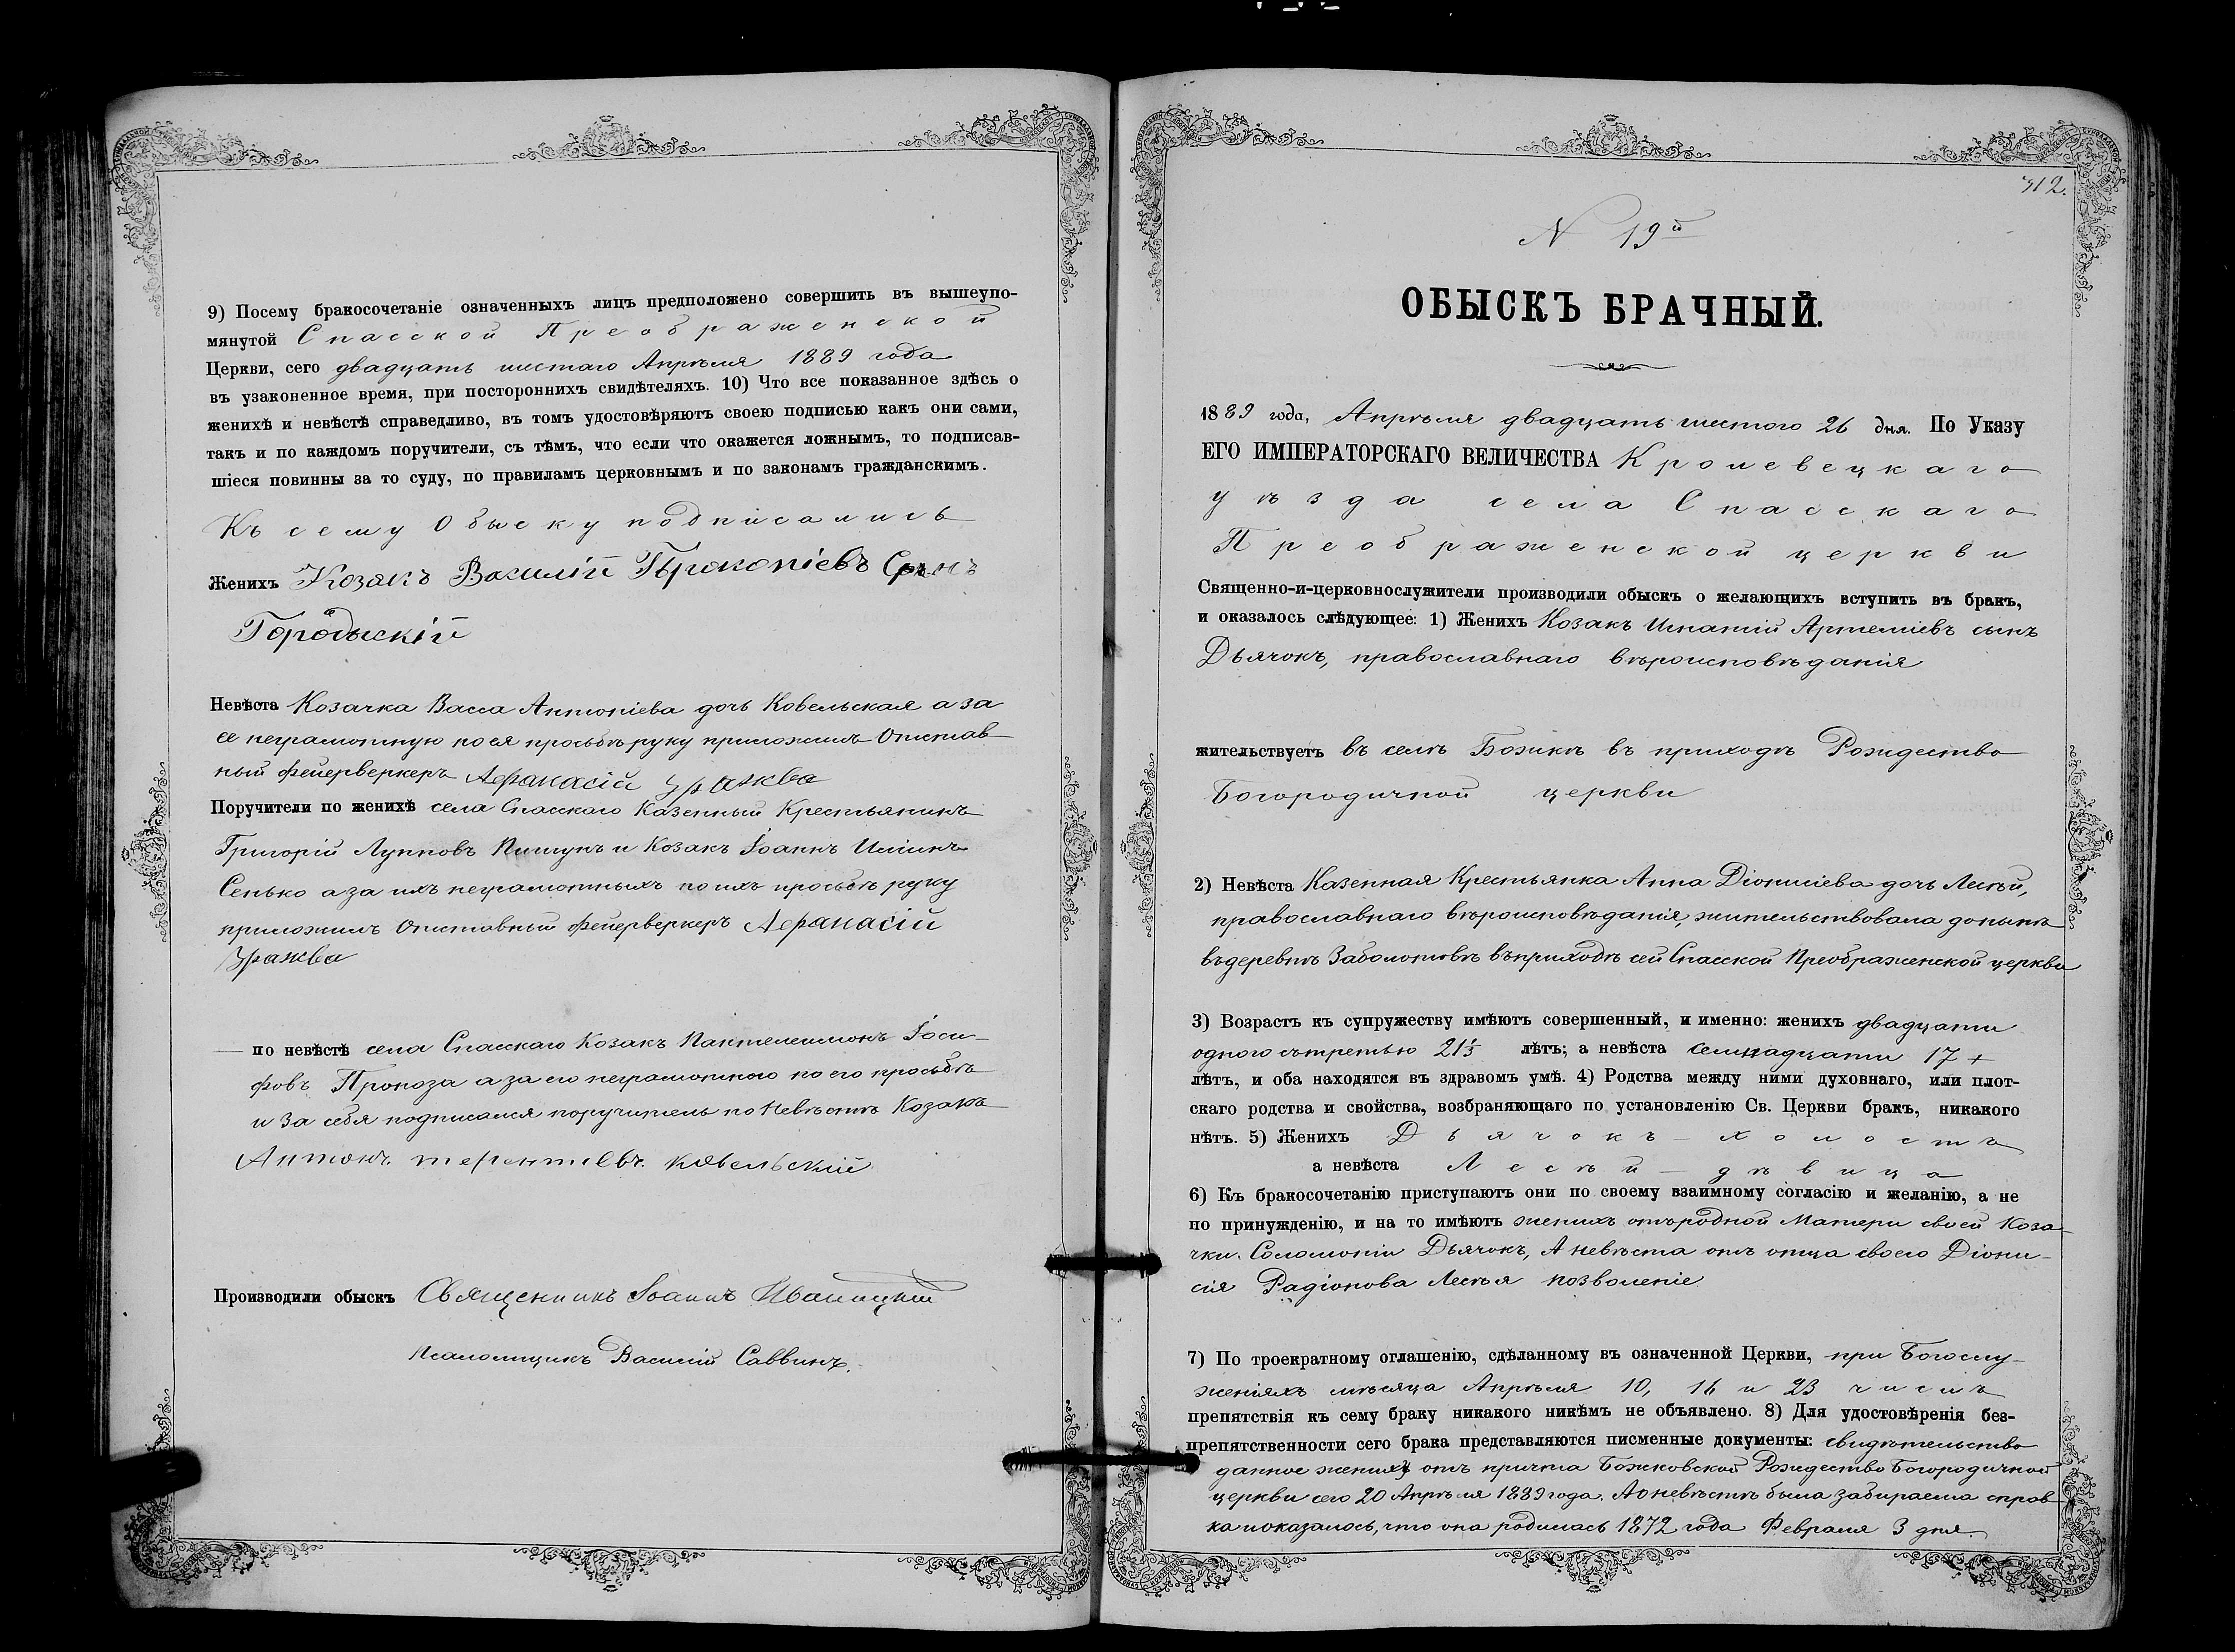 9) Посему бракосочетаніе означенныхъ лицъ предположено совершить въ вышеупо-
мянутой Спасской Преображенской
Церкви, сего двадцать шестаго Апрѣля 1889 года
въ узаконенное время, при постороннихъ свидѣтеляхъ. 10) Что все показанное здѣсь о
женихѣ и невѣстѣ справедливо, въ томъ удостовѣряютъ своею подписью какъ они сами,
такъ и по каждомъ поручители, съ тѣмъ, что если что окажется ложнымъ, то подписав-
шіеся повинны за то суду, по правиламъ церковнымъ и по законамъ гражданскимъ.
Къ сему Обыску подписались
Женихъ Козакъ Василій Прокопіевъ Сынъ
Городыскій
Невѣста Козачка Васса Антоніева дочь Ковельская а за
ея неграмотную по ея просьбѣ руку приложилъ Отстав-
ный фейерверкеръ Афанасій Уражва
Поручители по женихѣ села Спасскаго Казенный Крестьянинъ
Григорій Лупповъ Пищукъ и Козакъ Іоаннъ Иліинъ
Сенько а за ихъ неграмотныхъ по ихъ просьбѣ руку
приложилъ Отставный фейерверкеръ Афанасій
Уражва
— по невѣстѣ села Спасскаго Козакъ Пантелеимонъ Іоси-
фовъ Пропоза а за его неграмотного по его просьбѣ
и за себя подписался поручитель по Невѣстѣ Козакъ
Антонъ терентіевъ ковельскій
Производили обыскъ Священникъ Іоаннъ Иваницкій
Псаломщикъ Василій Саввинъ.
312.
N 19й
ОБЫСКЪ БРАЧНЫЙ.
1889 года, Апрѣля двадцать шестого 26 дня. По Указу
ЕГО ИМПЕРАТОРСКАГО ВЕЛИЧЕСТВА Кролевецкаго
уѣзда села Спасскаго
Преображенской церкви
Священно-и-церковнослужители производили обыскъ о желающихъ вступить въ бракъ,
и оказалось слѣдующее: 1) Женихъ Козакъ Игнатій Артеміевъ сынъ
Дьячокъ, православнаго вѣроисповѣданія
жительствуетъ въ селѣ Божкѣ въ приходѣ Рождество
Богородичной церкви
2) Невѣста Казенная Крестьянка Анна Діонисіева дочь Лесѣй,
православнаго вѣроисповѣданія, жительствовала донынѣ
въ деревнѣ Заболотовѣ въ приходѣ сей Спасской Преображенской церкви
3) Возрастъ къ супружеству имѣютъ совершенный, и именно: женихъ двадцати
одного съ третью 21⅓ лѣтъ; а невѣста семнадцати 17 +
лѣтъ, и оба находятся въ здравомъ умѣ. 4) Родства между ними духовнаго, или плот-
скаго родства и свойства, возбраняющаго по установленію Св. Церкви бракъ, никакого
нѣтъ. 5) Женихъ Дьячокъ — холостъ
а невѣста Лесѣй — дѣвица
6) Къ бракосочетанію приступаютъ они по своему взаимному согласію и желанію, а не
по принужденію, и на то имѣютъ женихъ отъ родной Матери своей Коза-
чки Соломоніи Дьячокъ, А невѣста отъ отца своего Діони-
сія Радіонова Лесѣя позволеніе
7) По троекратному оглашенію, сдѣланному въ означенной Церкви, при Богослу-
женіяхъ мѣсяца Апрѣля 10, 16 и 23 числъ
препятствія къ сему браку никакого никѣмъ не объявлено. 8) Для удостовѣренія без-
препятственности сего брака представляются писменные документы: свидѣтельство
данное жениху отъ причта Божковской Рождество Богородичной
церкви сего 20 Апрѣля 1889 года. А о невѣстѣ была забираема справ-
ка и оказалось, что она родилась 1872 года Февраля 3 дня.